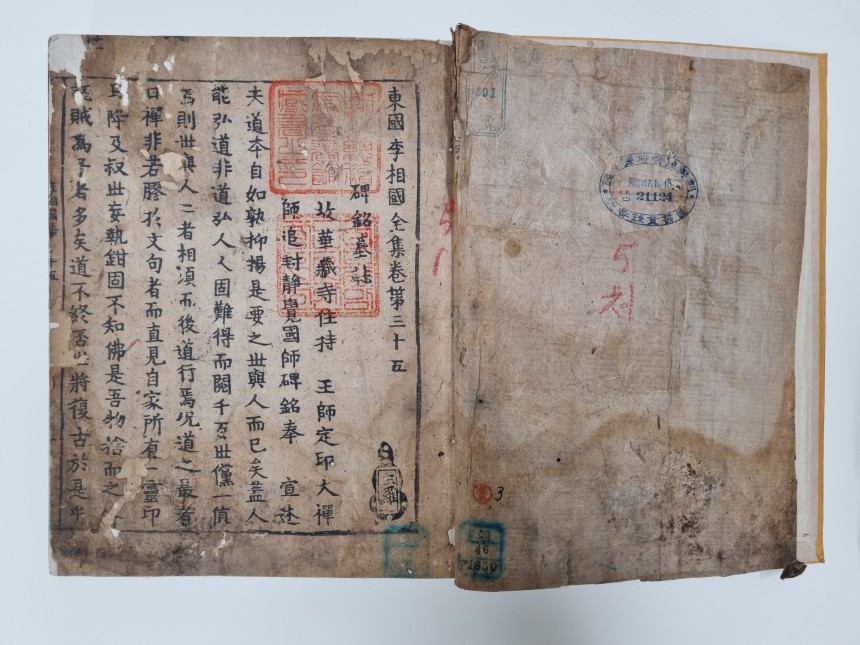 21124
5
책
3
46
東國李相國全集卷第三十五
碑銘墓誌
故華藏寺住持 王師定印大禪
師追封靜覺國師碑銘奉 宣述
夫道本自如孰抑揚是要之世與人而已矣蓋人
能弘道非道弘人人固難得而閱千百世儻一値
焉則世與人二者相須而後道行焉況道之最者
曰禪非若膠於文句者而直見自家所有一靈印
降及叔世妄執鉗固不知佛是吾物捨而之
賊爲子者多矣道不終否必將復古於是乎